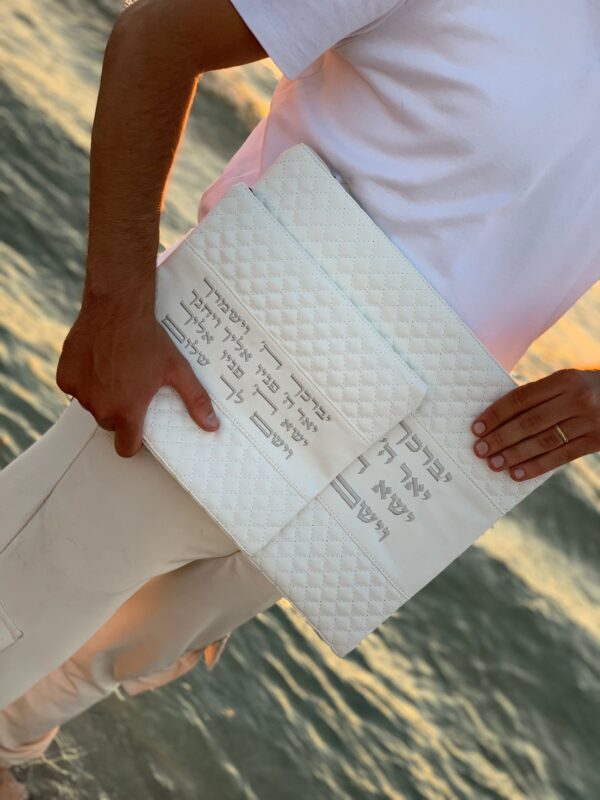 יברכך ה' וישמרך
יאר ה' פניו אליך ויחנך
ישא ה' פניו אליך
וישם לך שלום
יברכך
יאר ה'
ישא
וישם